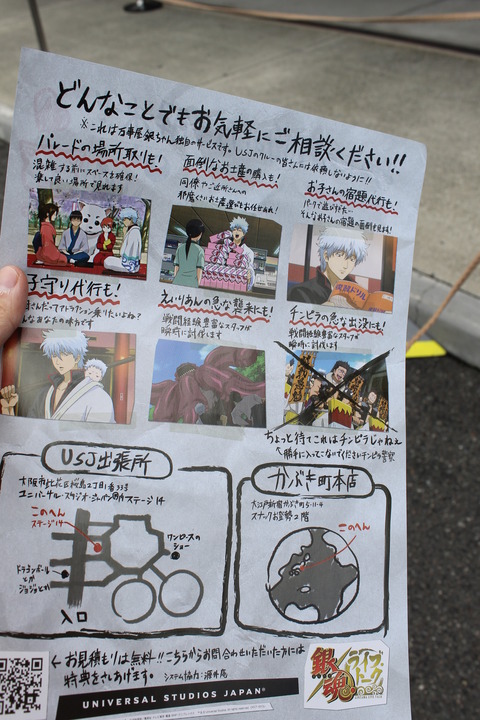 どんなことでもお気軽にご相談ください!!
※これは万事屋銀ちゃん独自のサービスです。USJのクルーの皆さんには依頼しないように!!
パレードの場所取りも!
混雑する前にスペースを確保!
楽して良い場所で見れます
面倒なお土産の購入も!
同僚やご近所さんへの
邪魔くさいお土産選びもお任せあれ!
お子さんの宿題代行も!
パークで遊びたい…
そんなお子さんの宿題の面倒を見ます!
子守り代行も!
さんだってアトラクション乗りたいよね?
んなあなたの味方です
えいりあんの急な襲来にも!
戦闘経験豊富なスタッフが
瞬時に討伐します
チンピラの急な出没にも!
戦闘経験豊富なスタッフが
瞬時に討伐します
ちょっと待てこれはチンピラじゃねぇ
↑勝手に入ってこないでくださいチンピラ警察
USJ出張所
大阪市此花区桜島2丁目1番33号
ユニバーサル・スタジオ・ジャパン内ステージ14
このへん
ステージ14
ワンピースの
ショー
ドラゴンボール
とか
ジョジョとか
入口
かぶき町本店
大江戸新宿かぶき町5-11-4
スナックお登勢2階
このへん
←お見積もりは無料!!こちらからお問合わせいただいた方には
特典をさしあげます。
システム協力:源外庵
UNIVERSAL STUDIOS JAPAN
銀魂
ライブ・トーク